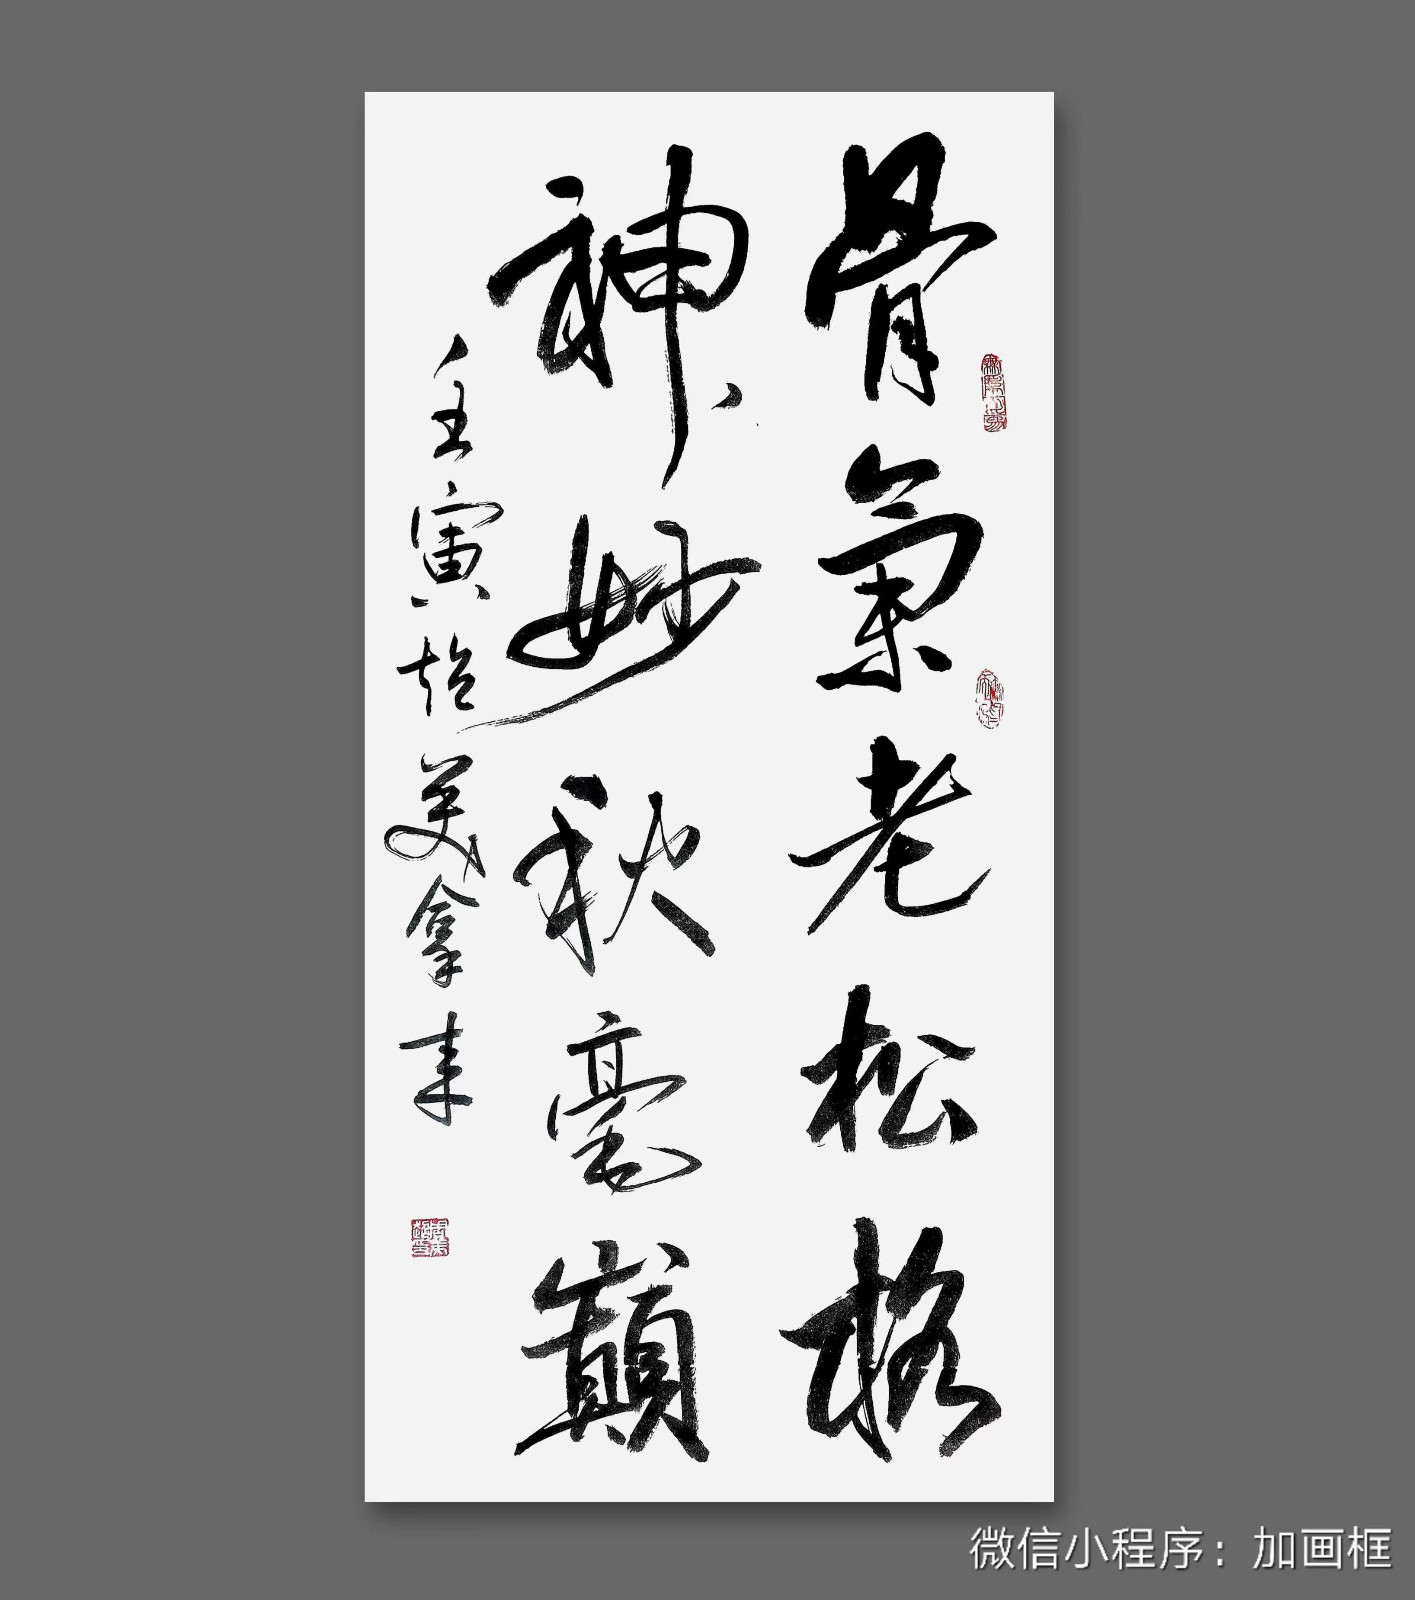 骨氣老松格
神妙秋毫巔
壬寅 美拿
微信小程序：加画框